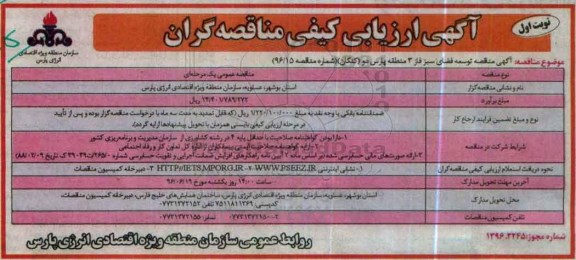 نوبت اول
آگهی ارزیابی کیفی مناقصه گران
سازمان منطقه ویژه اقتصادی
انرژی پارس
موضوع مناقصه: آگهی مناقصه توسعه فضای سبز فاز ۳ منطقه پارس دو (کنگان)(شماره مناقصه ۹۶/۱۵)
نوع مناقصه
مناقصه عمومی یک مرحله‌ای
نام و نشانی مناقصه گزار
استان بوشهر، عسلویه، سازمان منطقه ویژه اقتصادی انرژی پارس
مبلغ برآورد
ریال
نوع و مبلغ تضمین فرآیند ارجاع کار
ضمانتنامه بانکی یا وجه نقد به مبلغ ۱/۲۲۰/۱۰۰/۰۰۰ ریال (که قابل تمدید به مدت سه ماه با درخواست مناقصه گزار بوده و پس از تأیید
در مرحله ارزیابی کیفی بایستی همزمان با تحویل پیشنهادها ارایه گردد).
شرایط شرکت در مناقصه
۱-دارا بودن گواهینامه صلاحیت با حداقل پایه ۴ در رشته کشاورزی از سازمان مدیریت و برنامه‌ریزی کشور
۲-ارایه گواهینامه صلاحیت ایمنی پیمانکاران از اداره کل تعاون کار و رفاه اجتماعی
نحوه دریافت استعلام ارزیابی کیفی مناقصه گران
۱-نشانی اینترنتی HTTP://IETS.MPORG.IR ۲-WWW.PSEEZ.IR ۳-دبیرخانه کمیسیون مناقصات
آخرین مهلت تحویل مدارک
ساعت ۱۴:۰۰ روز یکشنبه مورخ ۹۶/۰۶/۱۹
محل تحویل مدارک
استان بوشهر، عسلویه، سازمان منطقه ویژه اقتصادی انرژی پارس، ساختمان همایش‌های خلیج فارس، دبیرخانه کمیسیون مناقصات
کدپستی: ۷۵۱۱۸۱۱۳۶۹ تلفن: ۰۷۷۳۱۳۷۲۱۵۲
تلفن کمیسیون مناقصات
تلفن: ۲-۰۷۷۳۱۳۷۲۱۵۰ نمابر: ۰۷۷۳۱۳۷۲۱۵۵
شماره مجوز: ۱۳۹۶.۲۲۲۵
روابط عمومی سازمان منطقه ویژه اقتصادی انرژی پارس